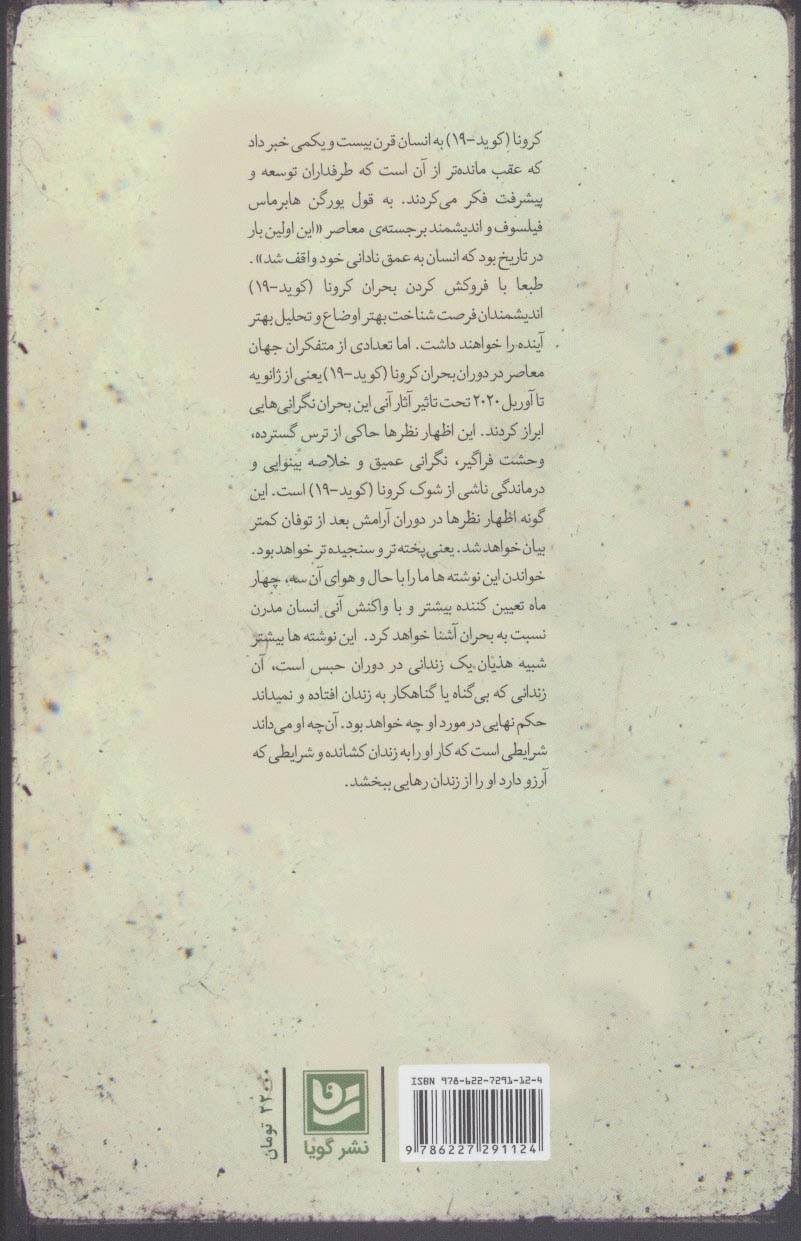 کرونا (کوید-۱۹) به انسان قرن بیست و یکمی خبر داد
که عقب مانده‌تر از آن است که طرفداران توسعه و
پیشرفت فکر می‌کردند. به قول یورگن هابرماس
فیلسوف و اندیشمند برجسته‌ی معاصر «این اولین بار
در تاریخ بود که انسان به عمق نادانی خود واقف شد».
طبعا با فروکش کردن بحران کرونا (کوید-۱۹)
اندیشمندان فرصت شناخت بهتر اوضاع و تحلیل بهتر
آینده را خواهند داشت. اما تعدادی از متفکران جهان
معاصر در دوران بحران کرونا (کوید-۱۹) یعنی از ژانویه
تا آوریل ۲۰۲۰ تحت تاثیر آثار آنی این بحران نگرانی‌هایی
ابراز کردند. این اظهار نظرها حاکی از ترس گسترده،
وحشت فراگیر، نگرانی عمیق و خلاصه بینوایی و
درماندگی ناشی از شوک کرونا (کوید-۱۹) است. این
گونه اظهار نظرها در دوران آرامش بعد از توفان کمتر
بیان خواهد شد. یعنی پخته‌تر و سنجیده‌تر خواهد بود.
خواندن این نوشته ها ما را با حال و هوای آن سه، چهار
ماه تعیین کننده بیشتر و با واکنش آنی انسان مدرن
نسبت به بحران آشنا خواهد کرد. این نوشته ها بیشتر
شبیه هذیان یک زندانی در دوران حبس است، آن
زندانی که بی‌گناه یا گناهکار به زندان افتاده و نمیداند
حکم نهایی در مورد او چه خواهد بود. آن‌چه او می‌داند
شرایطی است که کار او را به زندان کشانده و شرایطی که
آرزو دارد او را از زندان رهایی ببخشد.
ISBN 978-622-7291-12-4
9 786227 291124
نشر گویا
۲۲۰۰۰ تومان